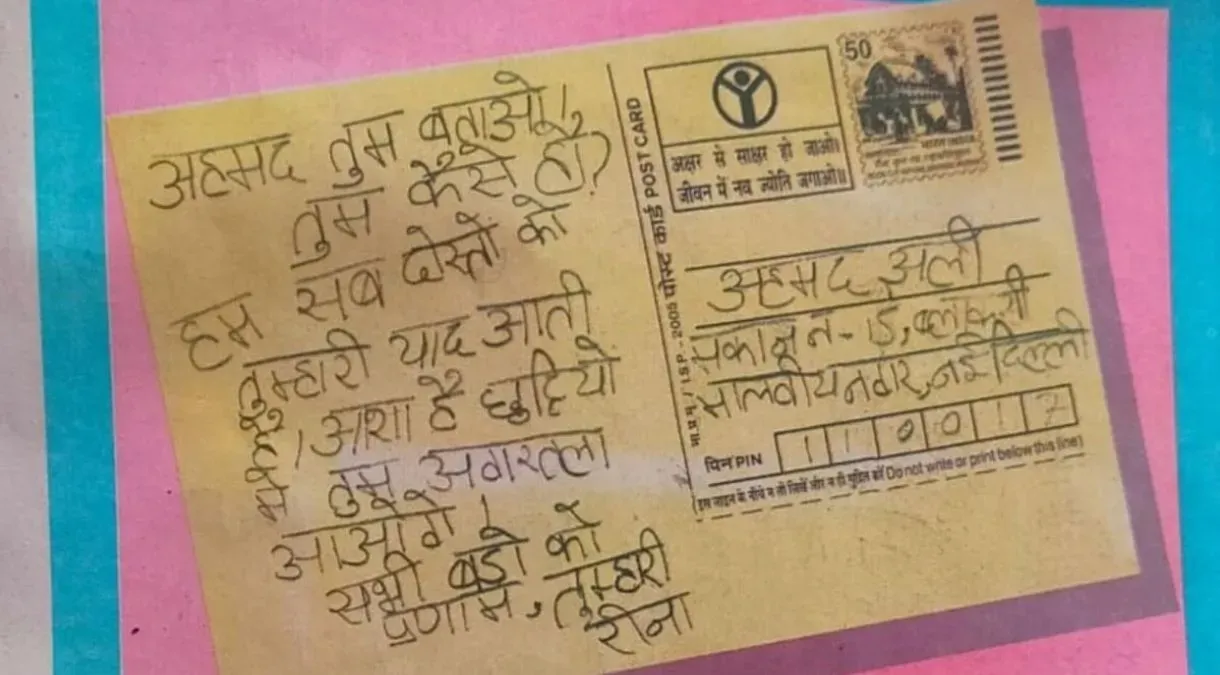 अहमद तुम बताओ,
तुम कैसे हो?
हम सब दोस्तों को
तुम्हारी याद आती
है। आशा है छुट्टियों
में तुम अगरतला
आओगे।
सभी बड़ो को
प्रणाम, तुम्हारी
रीना
पोस्ट कार्ड POST CARD
I.S.P.-2005
अक्षर से साक्षर हो जाओ।
जीवन में नव ज्योति जगाओ॥
50
भारत INDIA
अहमद अली
मकान न-15, ब्लाक-सी
मालवीय नगर, नई दिल्ली
पिन PIN 110017
(इस लाइन के नीचे न तो लिखें और न ही मुद्रित करें Do not write or print below this line)